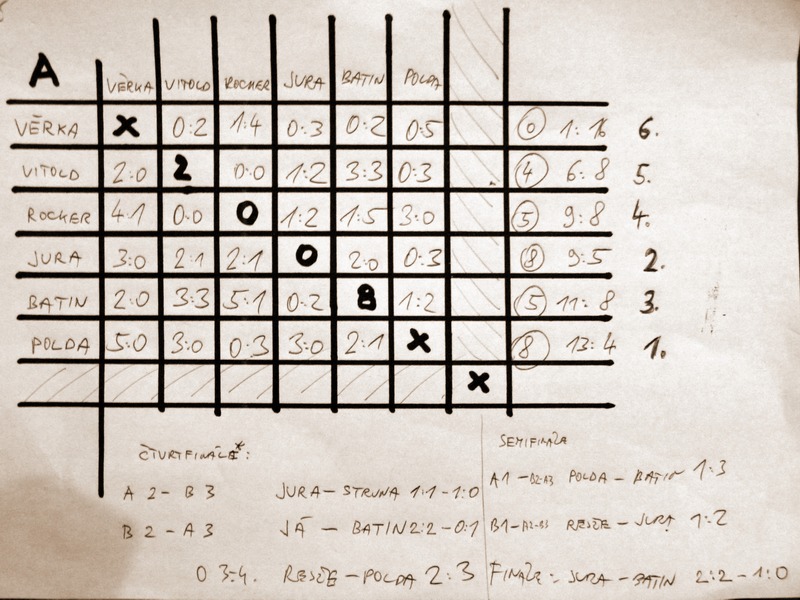 A VĚRKA VITOLD ROCHER JURA BATIN POLDA
VĚRKA X 0:2 1:4 0:3 0:2 0:5 0 1:16 6.
VITOLD 2:0 2 0:0 1:2 3:3 0:3 4 6:8 5.
ROCHER 4:1 0:0 0 1:2 1:5 3:0 5 9:8 4.
JURA 3:0 2:1 2:1 0 2:0 0:3 8 9:5 2.
BATIN 2:0 3:3 5:1 0:2 8 1:2 5 11:8 3.
POLDA 5:0 3:0 0:3 3:0 2:1 X 8 13:4 1.
X
ČTVRTFINÁLE*:
A2-B3 JURA-STRUNA 1:1-1:0
B2-A3 JÁ - BATIN 2:2-0:1
O 3.-4. - POLDA 2:3
SEMIFINÁLE
A1-B2-A3 POLDA-BATIN 1:3
B1-A2-B3 - JURA 1:2
FINÁLE: JURA-BATIN 2:2-1:0